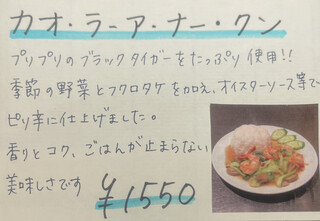 カオ・ラーア・ナー・クン
プリプリのブラックタイガーをたっぷり使用!!
季節の野菜とフクロタケを加え、オイスターソース等で
ピリ辛に仕上げました。
香りとコク、ごはんが止まらない
美味しさです ¥1550